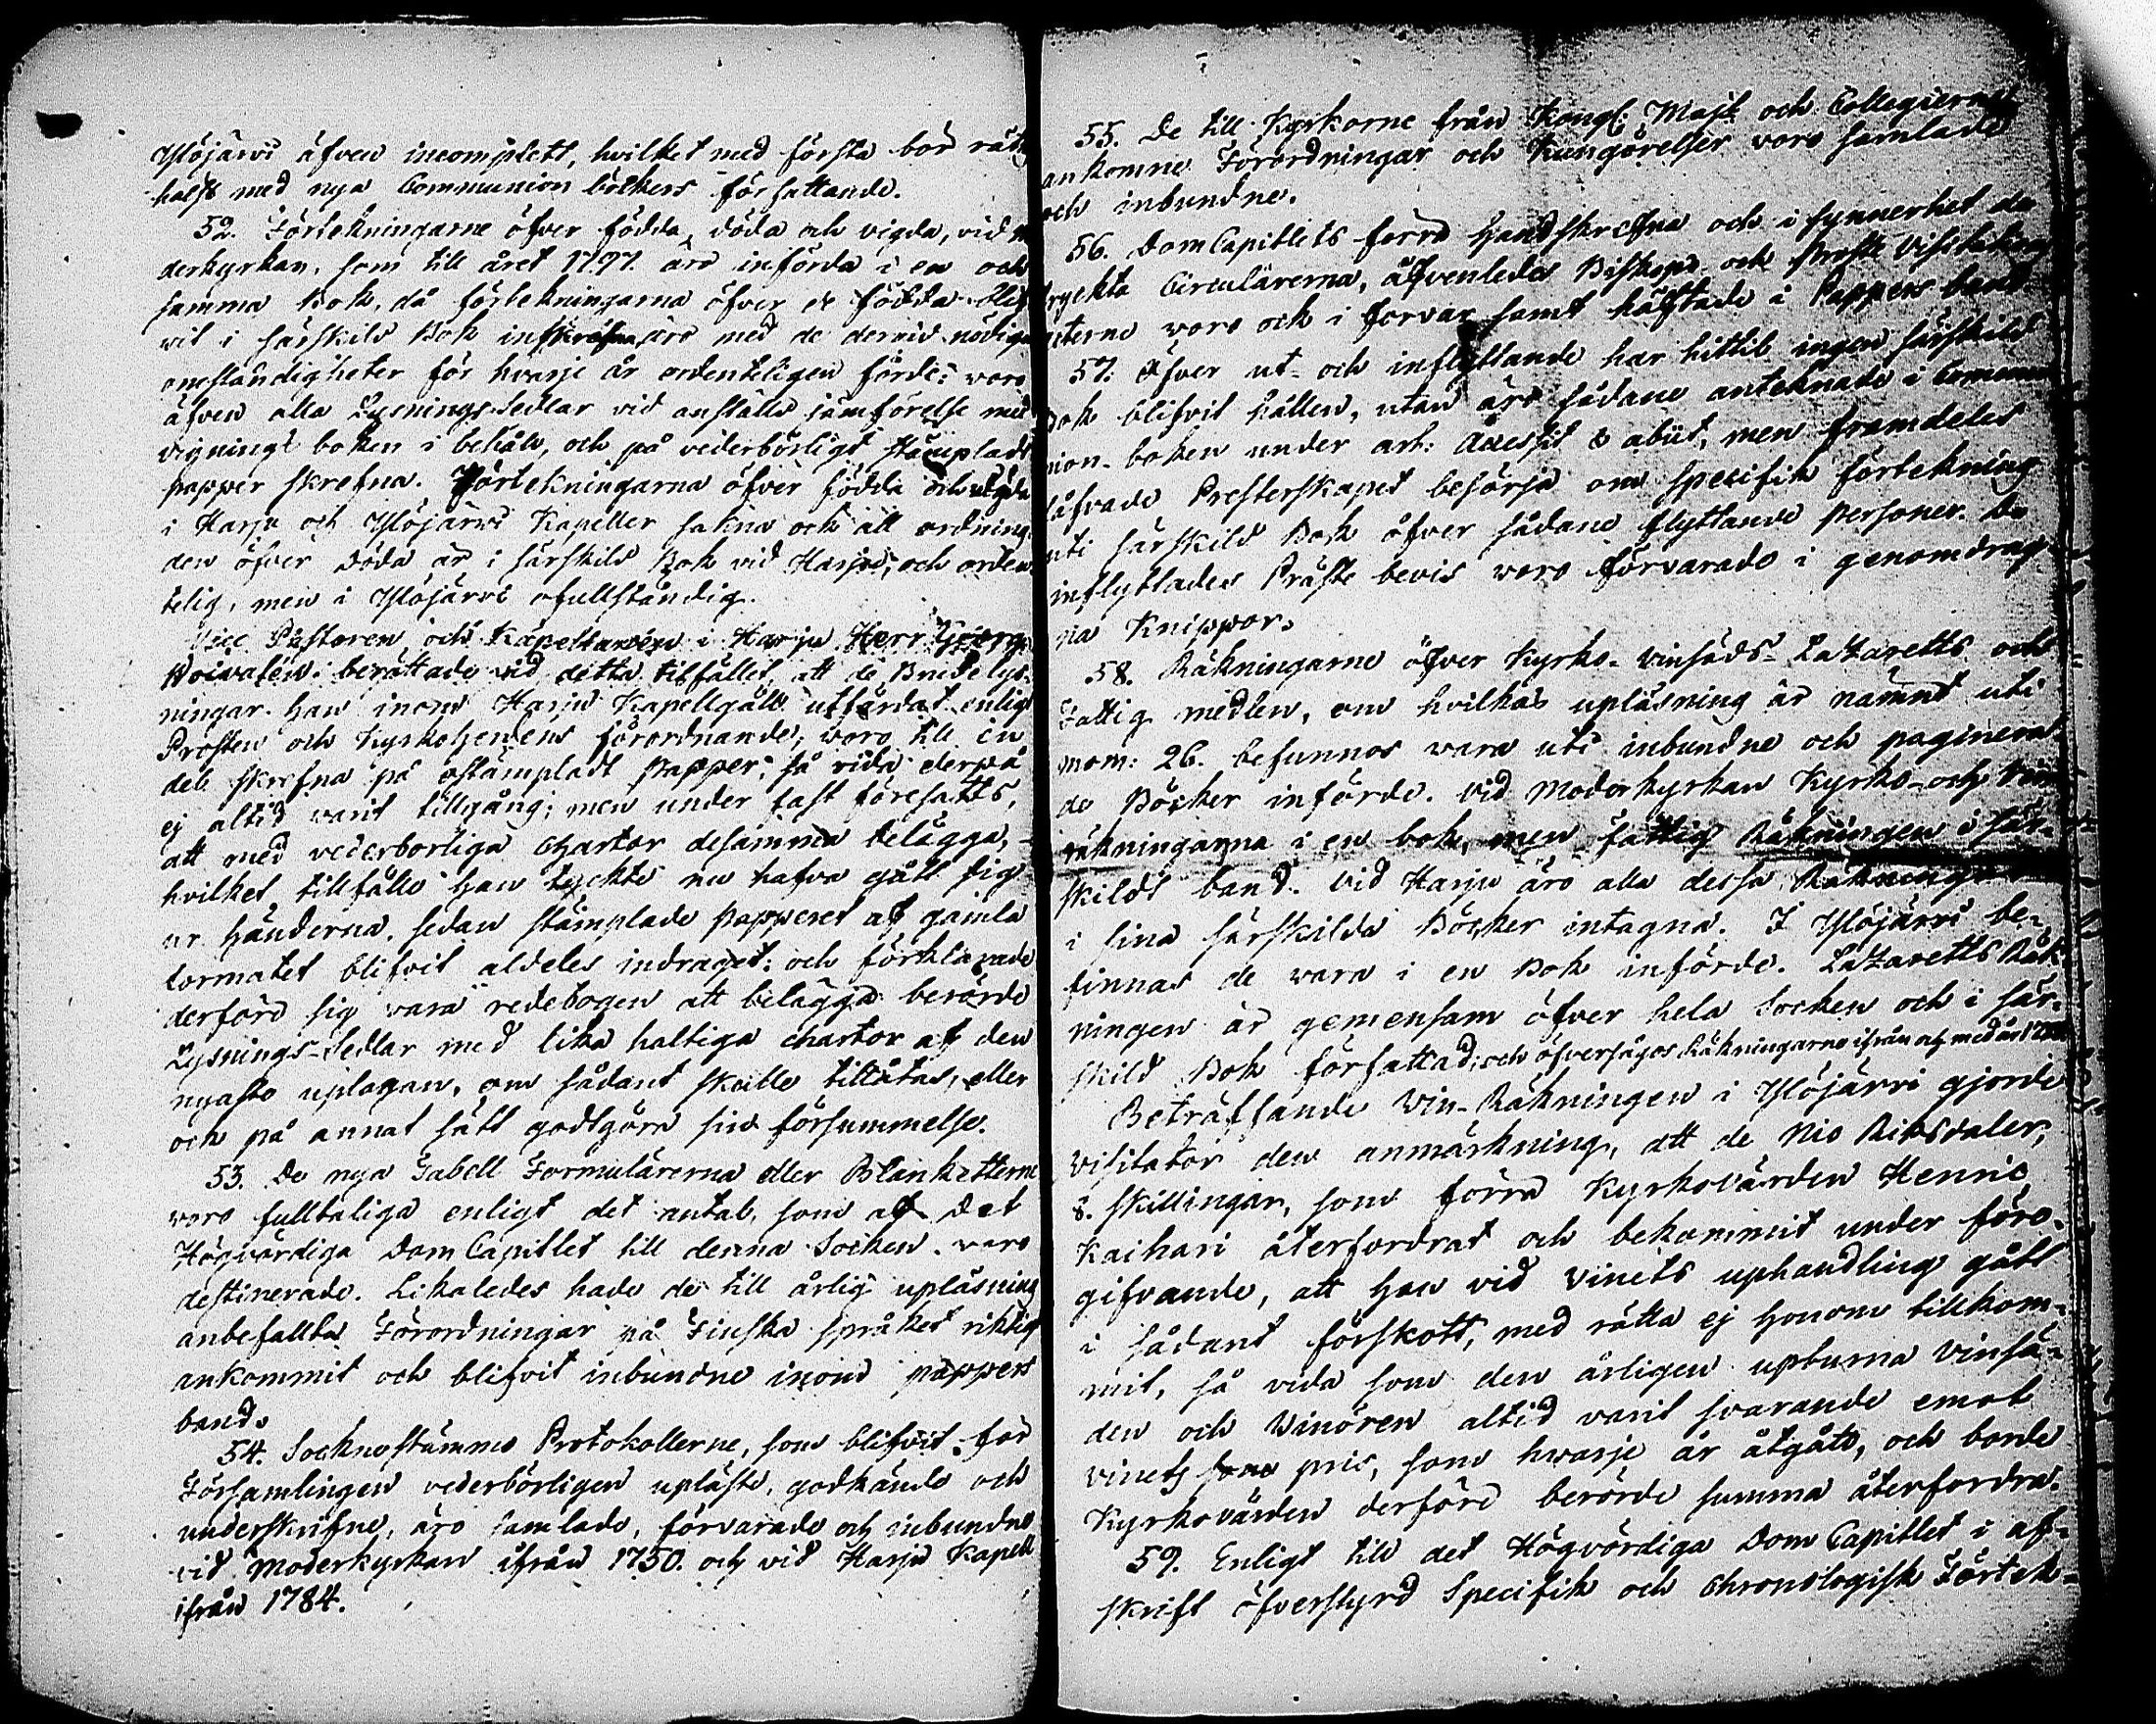 Ylöjärvi äfven incomplett, hvilket med första bör rät-
hålls med nya Communion böckers författande.
52. Förtekningarne öfver födda, döda och vigda, vid
derkyrkan, som till året 1797. äro införda i en och
samma Bok, då förtekningarna öfver de födda blif-
vit i särskild Bok inskrefna äro med de dervid nödiga
omständigheter för hvarje år ordenteligen förde: voro
äfven alla Lysnings-Sedlar vid anstäld jämförelse med
vignings boken i behåll, och på vederbörligt stämpladt
papper skrefna. Förtekningarna öfver födda och vigda
i Harju och Ylöjärvi Kapeller sakna ock all ordning,
den öfver Döda är i särskild Bok vid Harju, och orden-
telig, men i Ylöjärvi ofullständig.
Vice Pastoren och Kapellanen i Harju Herr Georg
berättade vid detta tillfället, att de Brudelys-
ningar han inom Harju Kapellgäll utfärdat enligt
Prosten och Kyrkoherdens förordnande, voro till en
del skrefna på ostämpladt papper; så vida derpå
ej altid varit tillgång; men under fast föresatts,
att med vederbörliga Chartor desamma belägga,
hvilket tillfälle han tyckte nu hafva gått sig
ur händerna, sedan stämplade papperet af gamla
formatet blifvit aldeles indraget: och förklarade
derföre sig vara redebogen att belägga berörde
Lysnings-Sedlar med lika haltiga chartor af den
nyaste uplagan, om sådant skulle tillåtas, eller
och på annat sätt godtgöra sin försummelse.
53. De nya Tabell Formulärerna eller Blanketterne
voro fulltaliga enligt det antal, som af Det
Högvördiga Dom Capitlet till denna Socken voro
destinerade. Likaledes hade de till årlig upläsning
anbefallta Förordningar på Finska språket riktigt
ankommit och blifvit inbundne inom pappers
band.
54. Socknestämmo Protokollerne, som blifvit för
Församlingen vederbörligen upläste, godkände och
underskrifne, äro samlade, förvarade och inbundne
vid Moderkyrkan ifrån 1750. och vid Harju Kapell
ifrån 1784.
55. De till Kyrkorne från Kongl: Majt och Collegierne
ankomne Förordningar och Kungörelser voro samlade
och inbundne.
56. Dom Capitlets förra handskrefna och i synnerhet de
tryckta Circulärerna, äfvenledes Biskops och Proste Visitations
acterne voro ock i förvar samt häftade i Pappers band
57. Öfver ut- och inflyttande har hittil ingen särskild
Bok blifvit hållen, utan äro sådane anteknade i Commu-
nion-boken under art: Accessit & abiit, men framdeles
låfvade Presterskapet besörja om specifik förtekning
uti särskild Bok öfver sådane flyttande personer. De
inflyttades Präste bevis voro förvarade i genomdrag-
na Knippor.
58. Räkningarne öfver Kyrko- vinsäds- Lazaretts och
Fattig medlen, om hvilkas upläsning är nämnt uti
mom: 26. befunnos vara uti inbundne och paginera-
de Böcker införde. Vid Moderkyrkan Kyrko- och Vin
räkningarna i en bok, men fattig Räkningen i sär-
skildt band. Vid Harju äro alla dessa Räkningar
i sina särskilda Böcker intagna. I Ylöjärvi be-
finnas de vara i en Bok införde. Lazaretts Räk-
ningen är gemensam öfver hela Socken och i sär-
skild Bok författad, och öfversågos Räkningarne ifrån och med år
Beträffande Vin-Räkningen i Ylöjärvi gjorde
Visitator den anmärkning, att de Nio Riksdaler,
8. skillingar, som förra Kyrkovärden Henric
Kaihari återfordrat och bekommit under före-
gifvande, att han vid vinets uphandling gått
i sådant förskott, med rätta ej honom tillkom-
mit, så vida som den årligen upburna vinsä-
den och Vinören altid varit svarande emot
vinets pris, som hvarje år åtgått, och borde
Kyrkovärden derföre berörde summa återfordras.
59. Enligt till det Högvördiga Dom Capitlet i af-
skrift öfverstyrd Specifik och Chronologisk Förtek-